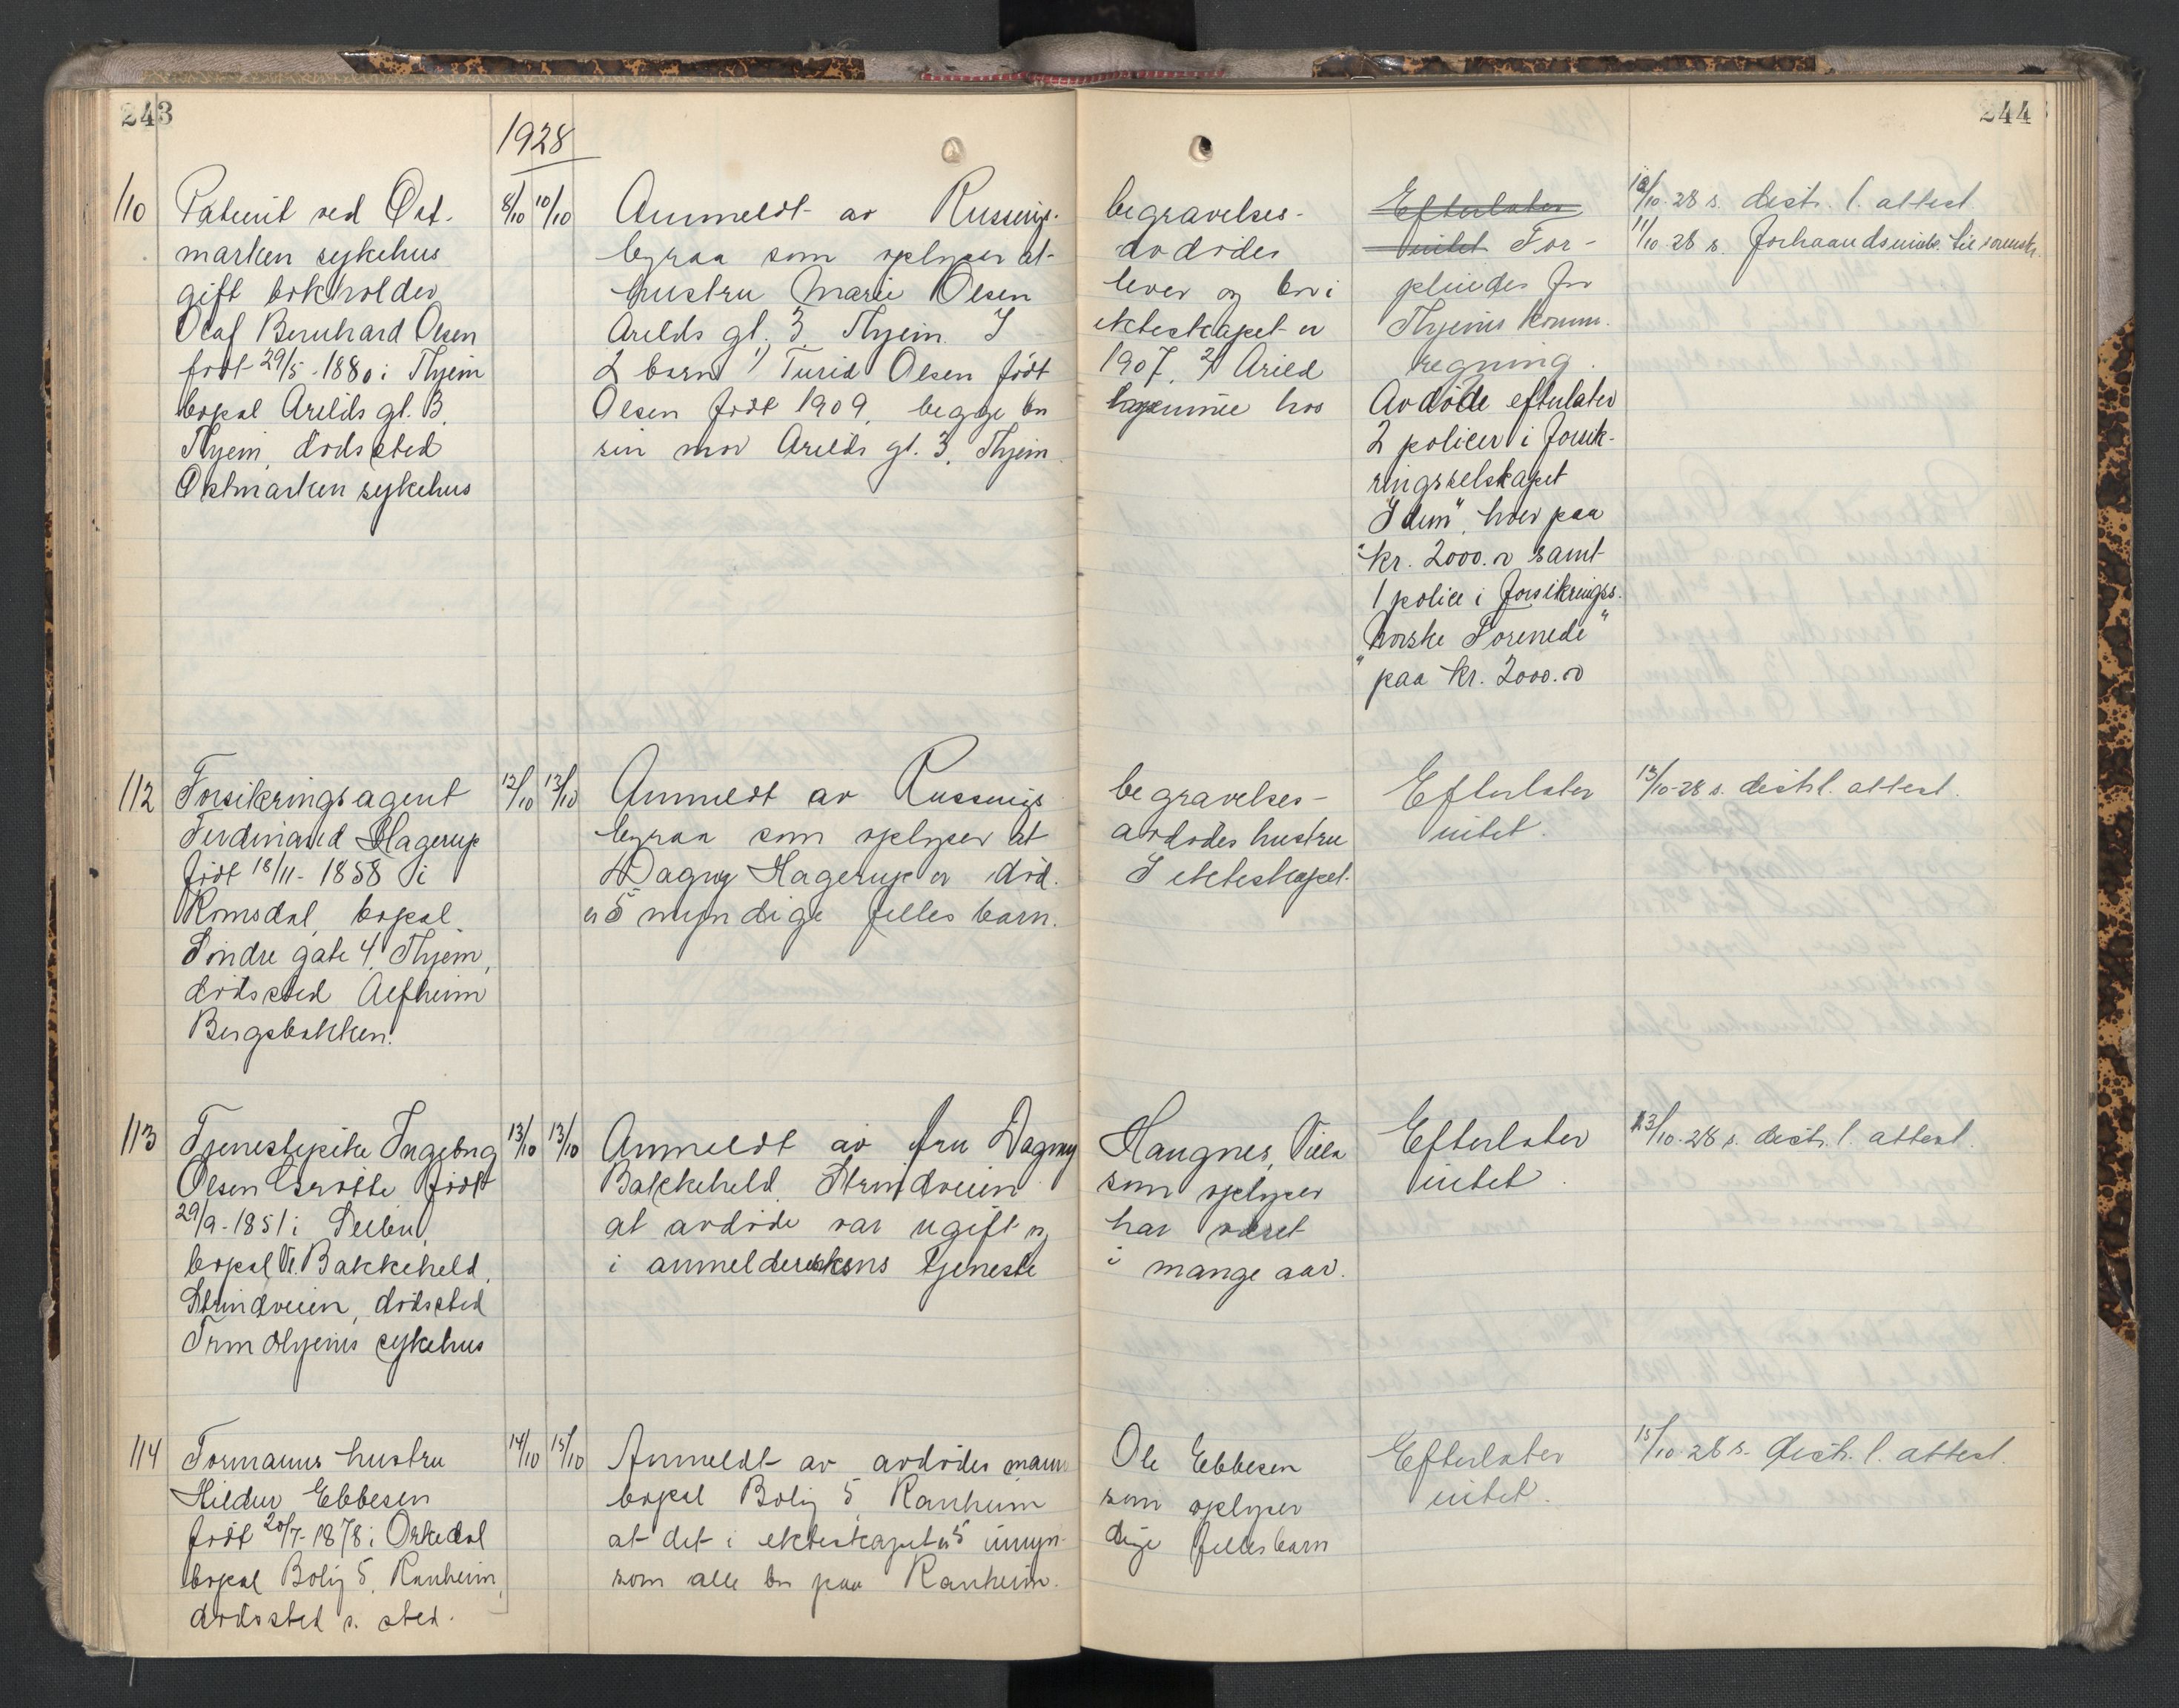 243
244
1928
110
Patient ved Øst-
marken sykehus
gift bokholder
Olaf Bernhard Olsen
født 29/5-1880 i Thjem
bopæl Arilds gt. 3,
Thjem, dødssted
Østmarken sykehus
8/10 10/10
Anmeldt av Russnigs- begravelses-
byraa som oplyser at avdødes
hustru Marie Olsen lever og bor i
Arilds gt. 3. Thjem. I ekteskapet er
2 barn 1) Turid Olsen født 1907, 2) Arild
Olsen født 1909, begge bor hjemme hos
sin mor Arilds gt. 3, Thjem
Efterlater
intet For-
pleiedes for
Thjems komm.
regning.
Avdøde efterlater
2 policer i forsik-
ringsselskapet
"Idun", hver paa
kr. 2000.00 samt
1 police i forsikringss.
"Norske Forenede"
paa kr. 2000.00
10/10-28 s. distr. l. attest
11/10-28 s. forhaandsinnb. til sorenskr.
112
Forsikringsagent
Ferdinand Hagerup
født 18/11-1858 i
Romsdal, bopæl
Søndre gate 4, Thjem,
dødssted Alfheim
Bergsbakken.
12/10 13/10
Anmeldt av Russnigs begravelses-
byraa som oplyser at avdødes hustru
Dagny Hagerup er død. I ekteskapet
er 5 myndige felles barn.
Efterlater
intet.
13/10-28 s. distr. l. attest.
113
Tjenestepike Ingeborg
Olsen født
29/9-1851 i Selbu,
bopæl V. Bakkeheld,
Strindveien, dødssted
Trondhjems sykehus
13/10 13/10
Anmeldt av fru Dagny Haugnes, Villa
Bakkeheld, Strindveien som oplyser
at avdøde var ugift og har været
i anmelderskens tjeneste i mange aar.
Efterlater
intet.
13/10-28 s. distr. l. attest.
114
Formanns hustru
Hildur Ebbesen
født 20/7-1878 i Orkedal
bopæl Bolig 5, Ranheim,
dødssted s. sted.
14/10 15/10
Anmeldt av avdødes mann Ole Ebbesen
bopæl Bolig 5, Ranheim som oplyser
at det i ekteskapet er 5 umyn- dige felles barn
som alle bor paa Ranheim.
Efterlater
intet.
15/10-28 s. distr. l. attest.